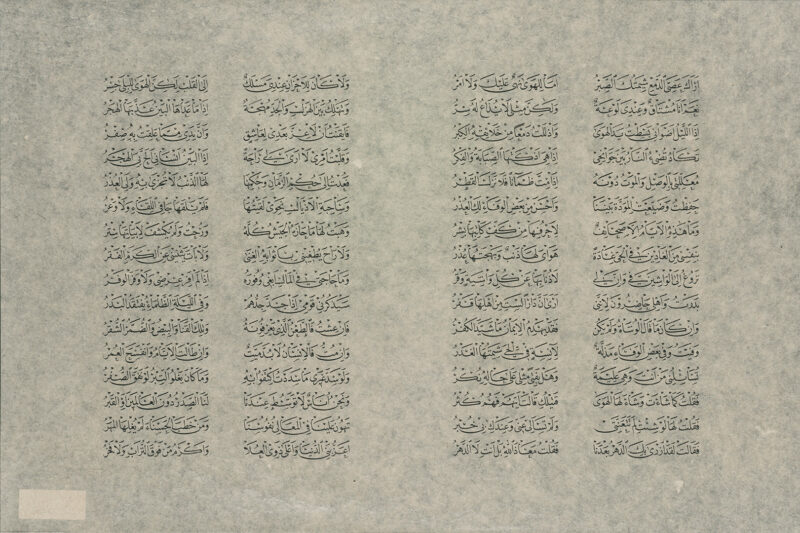 أراك عصي الدمع شيمتك الصبر أما للهوى نهي عليك ولا أمر
نعم أنا مشتاق وعندي لوعة ولكن مثلي لا يذاع له سر
إذا الليل أضواني بسطت يد الهوى وأذللت دمعا من خلائقه الكبر
تكاد تضيء النار بين جوانحي إذا هي أذكتها الصبابة والفكر
معللتي بالوصل والموت دونه إذا بت ظمآنا فلا نزل القطر
حفظت وضيعت المودة بيننا وأحسن من بعض الوفاء لك العذر
وما هذه الأيام إلا صحائف لأحرفها من كف كاتبها بشر
بنفسي من الغادين في الحي غادة هواي لها ذنب وبهجتها عذر
تروغ إلى الواشين في وإن لي لأذنا بها عن كل واشية وقر
بدوت وأهلي حاضرون لأنني أرى أن دارا لست من أهلها قفر
وإن كان ما قال الوشاة ولم يكن فقد يهدم الإيمان ما شيد الكفر
وفيت وفي بعض الوفاء مذلة لآنسة في الحي شيمتها الغدر
تسائلني من أنت وهي عليمة وهل بفتى مثلي على حاله نكر
فقلت كما شاءت وشاء لها الهوى قتيلك قالت أيهم فهم كثر
فقلت لها لو شئت لم تتعنتي ولم تسألي عني وعندك بي خبر
فقالت لقد أزرى بك الدهر بعدنا فقلت معاذ الله بل أنت لا الدهر
ولا كان للأحزان عندي مسلك إلى القلب لكن الهوى للبلى جسر
وتهلك بين الهزل والجد مهجة إذا ما عداها البين عذبها الهجر
فأيقنت أن لا عز بعدي لعاشق وأن يدي مما علقت به صفر
وقلبت أمري لا أرى لي راحة إذا البين أنساني ألح بي الهجر
فعدت إلى حكم الزمان وحكمها لها الذنب لا تجزى به ولي العذر
وساحبة الأذيال نحوي لقيتها فلم يلقها جافي اللقاء ولا وعر
وهبت لها ما حازه الجيش كله ورحت ولم يكشف لأبياتها ستر
ولا راح يطغيني بأثوابه الغنى ولا بات يثنيني عن الكرم الفقر
وما حاجتي في المال أبغي وفوره إذا لم أفر عرضي فلا وفر الوفر
سيذكرني قومي إذا جد جدهم وفي الليلة الظلماء يفتقد البدر
فإن عشت فالطعن الذي يعرفونه وتلك القنا والبيض والضمر الشقر
وإن مت فالإنسان لا بد ميت وإن طالت الأيام وانفسح العمر
ولو سد غيري ما سددت اكتفوا به وما كان يغلو التبر لو نفق الصفر
ونحن أناس لا توسط عندنا لنا الصدر دون العالمين أو القبر
تهون علينا في المعالي نفوسنا ومن خطب الحسناء لم يغلها المهر
أعز بني الدنيا وأعلى ذوي العلا وأكرم من فوق التراب ولا فخر